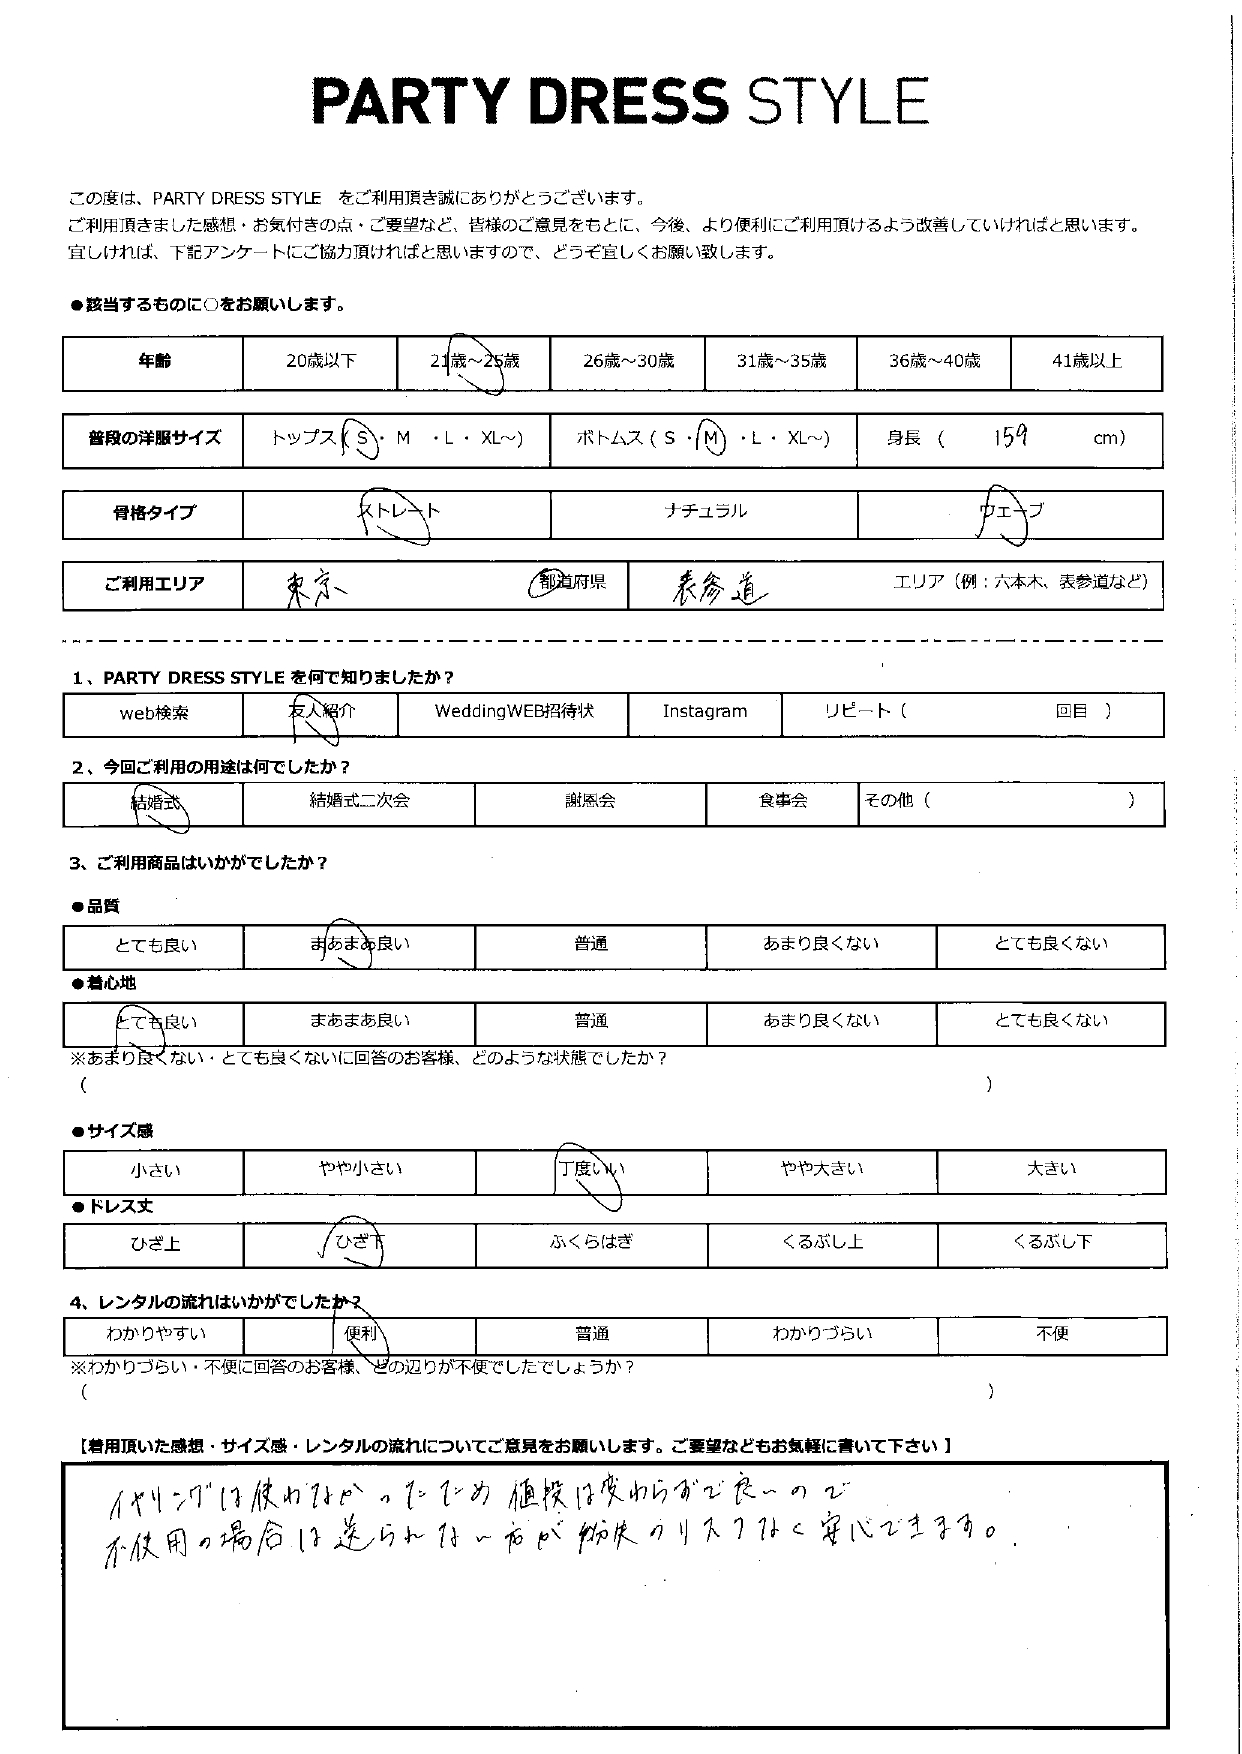 PARTY DRESS STYLE
この度は、PARTY DRESS STYLE をご利用頂き誠にありがとうございます。
ご利用頂きました感想・お気付きの点・ご要望など、皆様のご意見をもとに、今後、より便利にご利用頂けるよう改善していければと思います。
宜しければ、下記アンケートにご協力頂ければと思いますので、どうぞ宜しくお願い致します。
●該当するものに○をお願いします。
年齢 20歳以下 21歳～25歳 26歳～30歳 31歳～35歳 36歳～40歳 41歳以上
普段の洋服サイズ トップス ( S ・ M ・L ・ XL～) ボトムス ( S ・ M ・L ・ XL～) 身長 ( 159 cm)
骨格タイプ ストレート ナチュラル ウェーブ
ご利用エリア 東京 都道府県 表参道 エリア（例：六本木、表参道など）
1、PARTY DRESS STYLE を何で知りましたか？
web検索 友人紹介 WeddingWEB招待状 Instagram リピート（ 回目 ）
2、今回ご利用の用途は何でしたか？
結婚式 結婚式二次会 謝恩会 食事会 その他（ ）
3、ご利用商品はいかがでしたか？
●品質
とても良い まあまあ良い 普通 あまり良くない とても良くない
●着心地
とても良い まあまあ良い 普通 あまり良くない とても良くない
※あまり良くない・とても良くないに回答のお客様、どのような状態でしたか？
( )
●サイズ感
小さい やや小さい 丁度いい やや大きい 大きい
●ドレス丈
ひざ上 ひざ下 ふくらはぎ くるぶし上 くるぶし下
4、レンタルの流れはいかがでしたか？
わかりやすい 便利 普通 わかりづらい 不便
※わかりづらい・不便に回答のお客様、どの辺りが不便でしたでしょうか？
( )
【着用頂いた感想・サイズ感・レンタルの流れについてご意見をお願いします。ご要望などもお気軽に書いて下さい】
イヤリングは使わなかったため値段は変わらずで良いので
不使用の場合は送られない方が紛失のリスクなく安心できます。